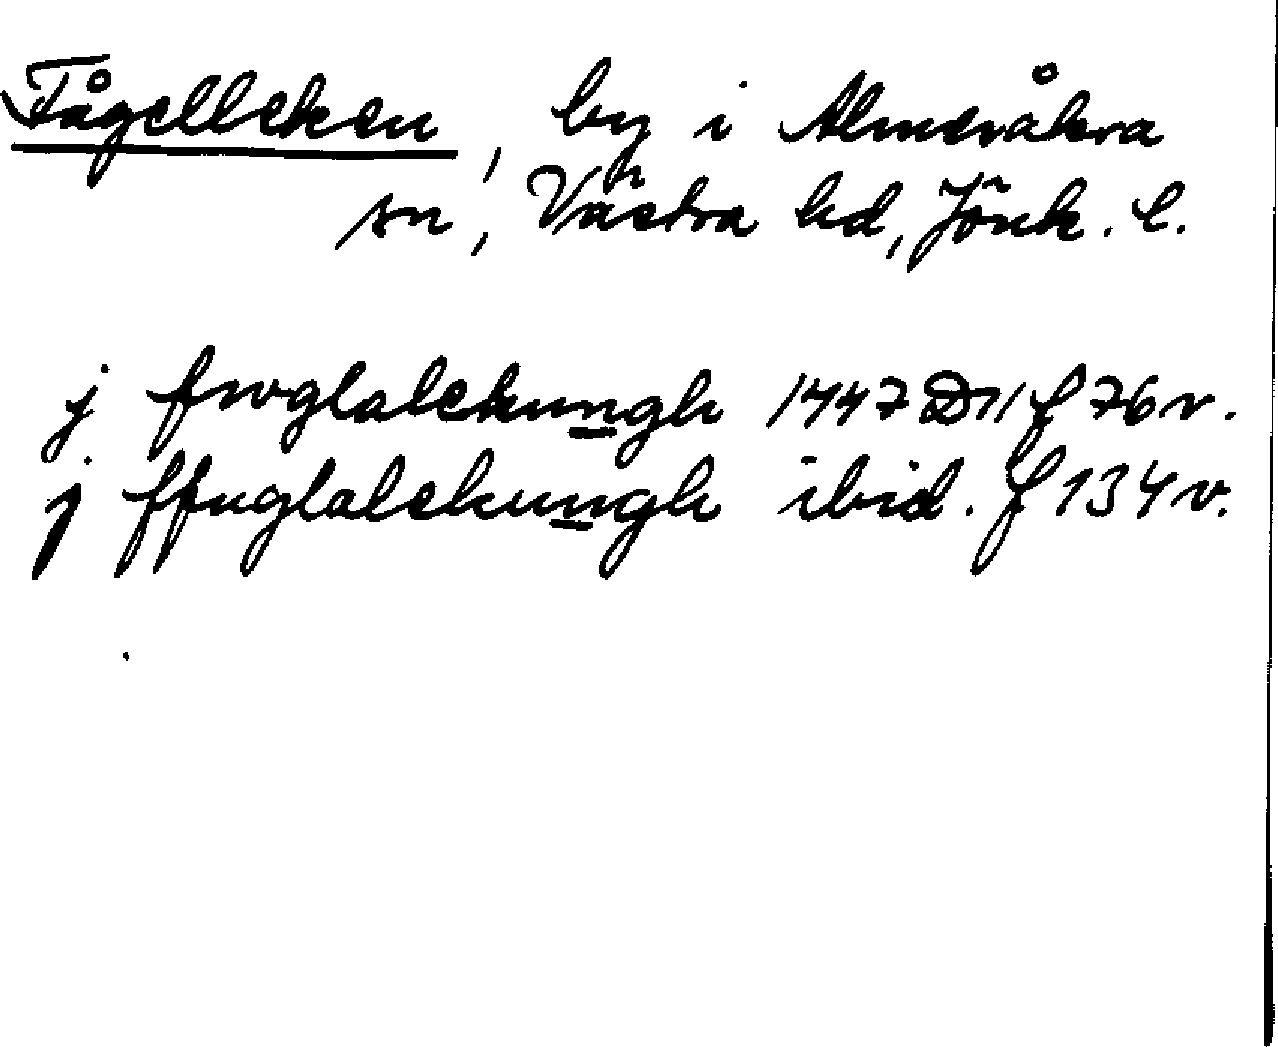 Fågelleken, by i Almesåkra
sn, Västra hd, Jönk. l.
j fwglalekungh 1447 D11 f 76v.
j ffuglalekungh ibid. f 134v.